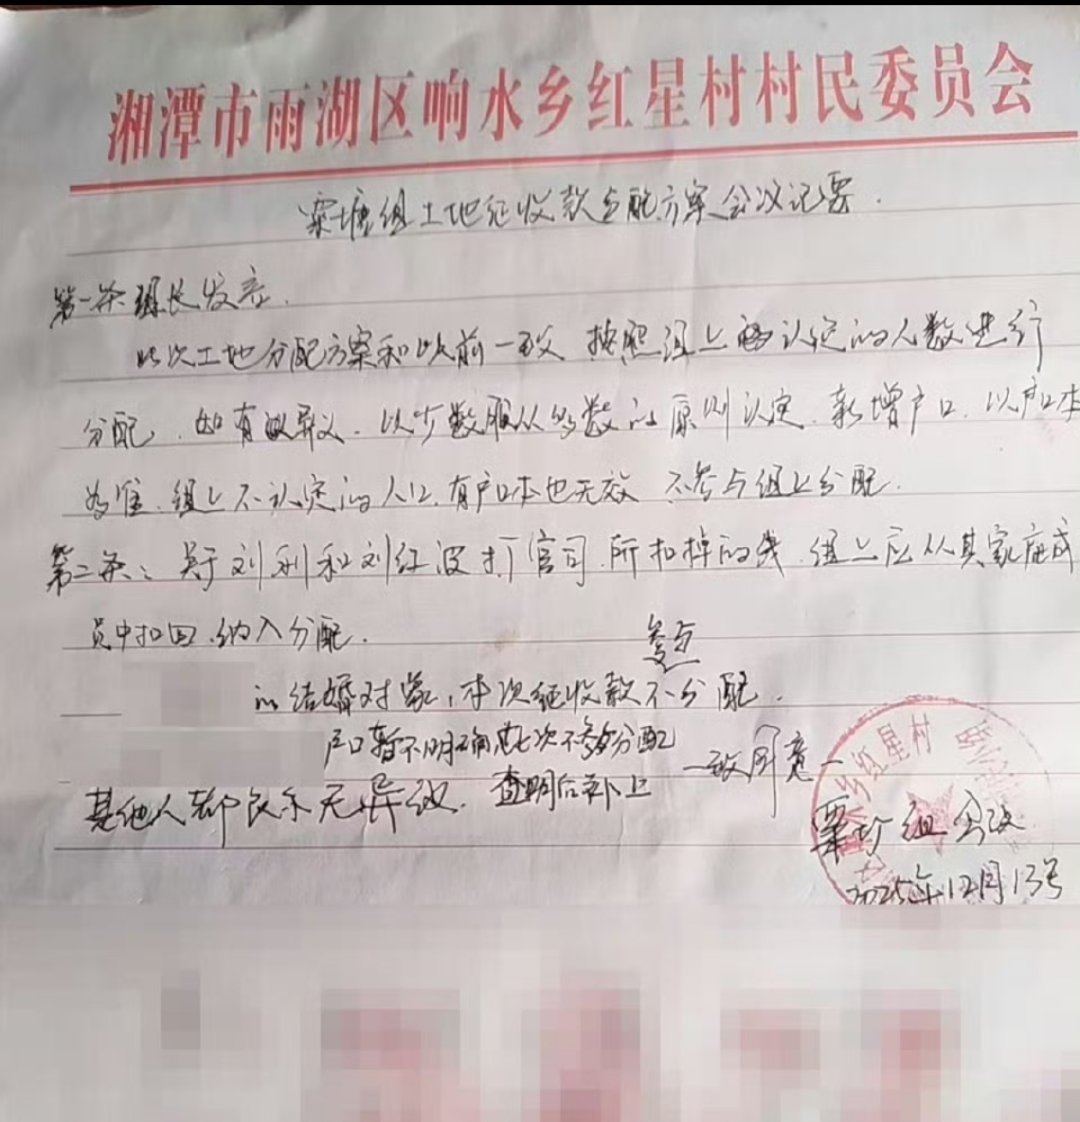 湘潭市雨湖区响水乡红星村村民委员会
塘组土地征收款分配方案会议记要.
第一条 组长发言.
此次土地分配方案和以前一致 按照组上确认定的人数进行
分配, 如有议异议. 以少数服从多数的原则认定. 新增户口. 以户口本
为准. 组上不认定的人口. 有户口本也无效 不参与组上分配.
第二条: 关于刘利和刘红波打官司. 所扣掉的钱. 组上应从其家庭成
员中扣回. 纳入分配.
参与
的结婚对象, 本次征收款不分配.
户口暂不明确此次不参与分配
一致同意
其他人都表示无异议. 查明后补上
乡红星村
组会议
2025年12月13号